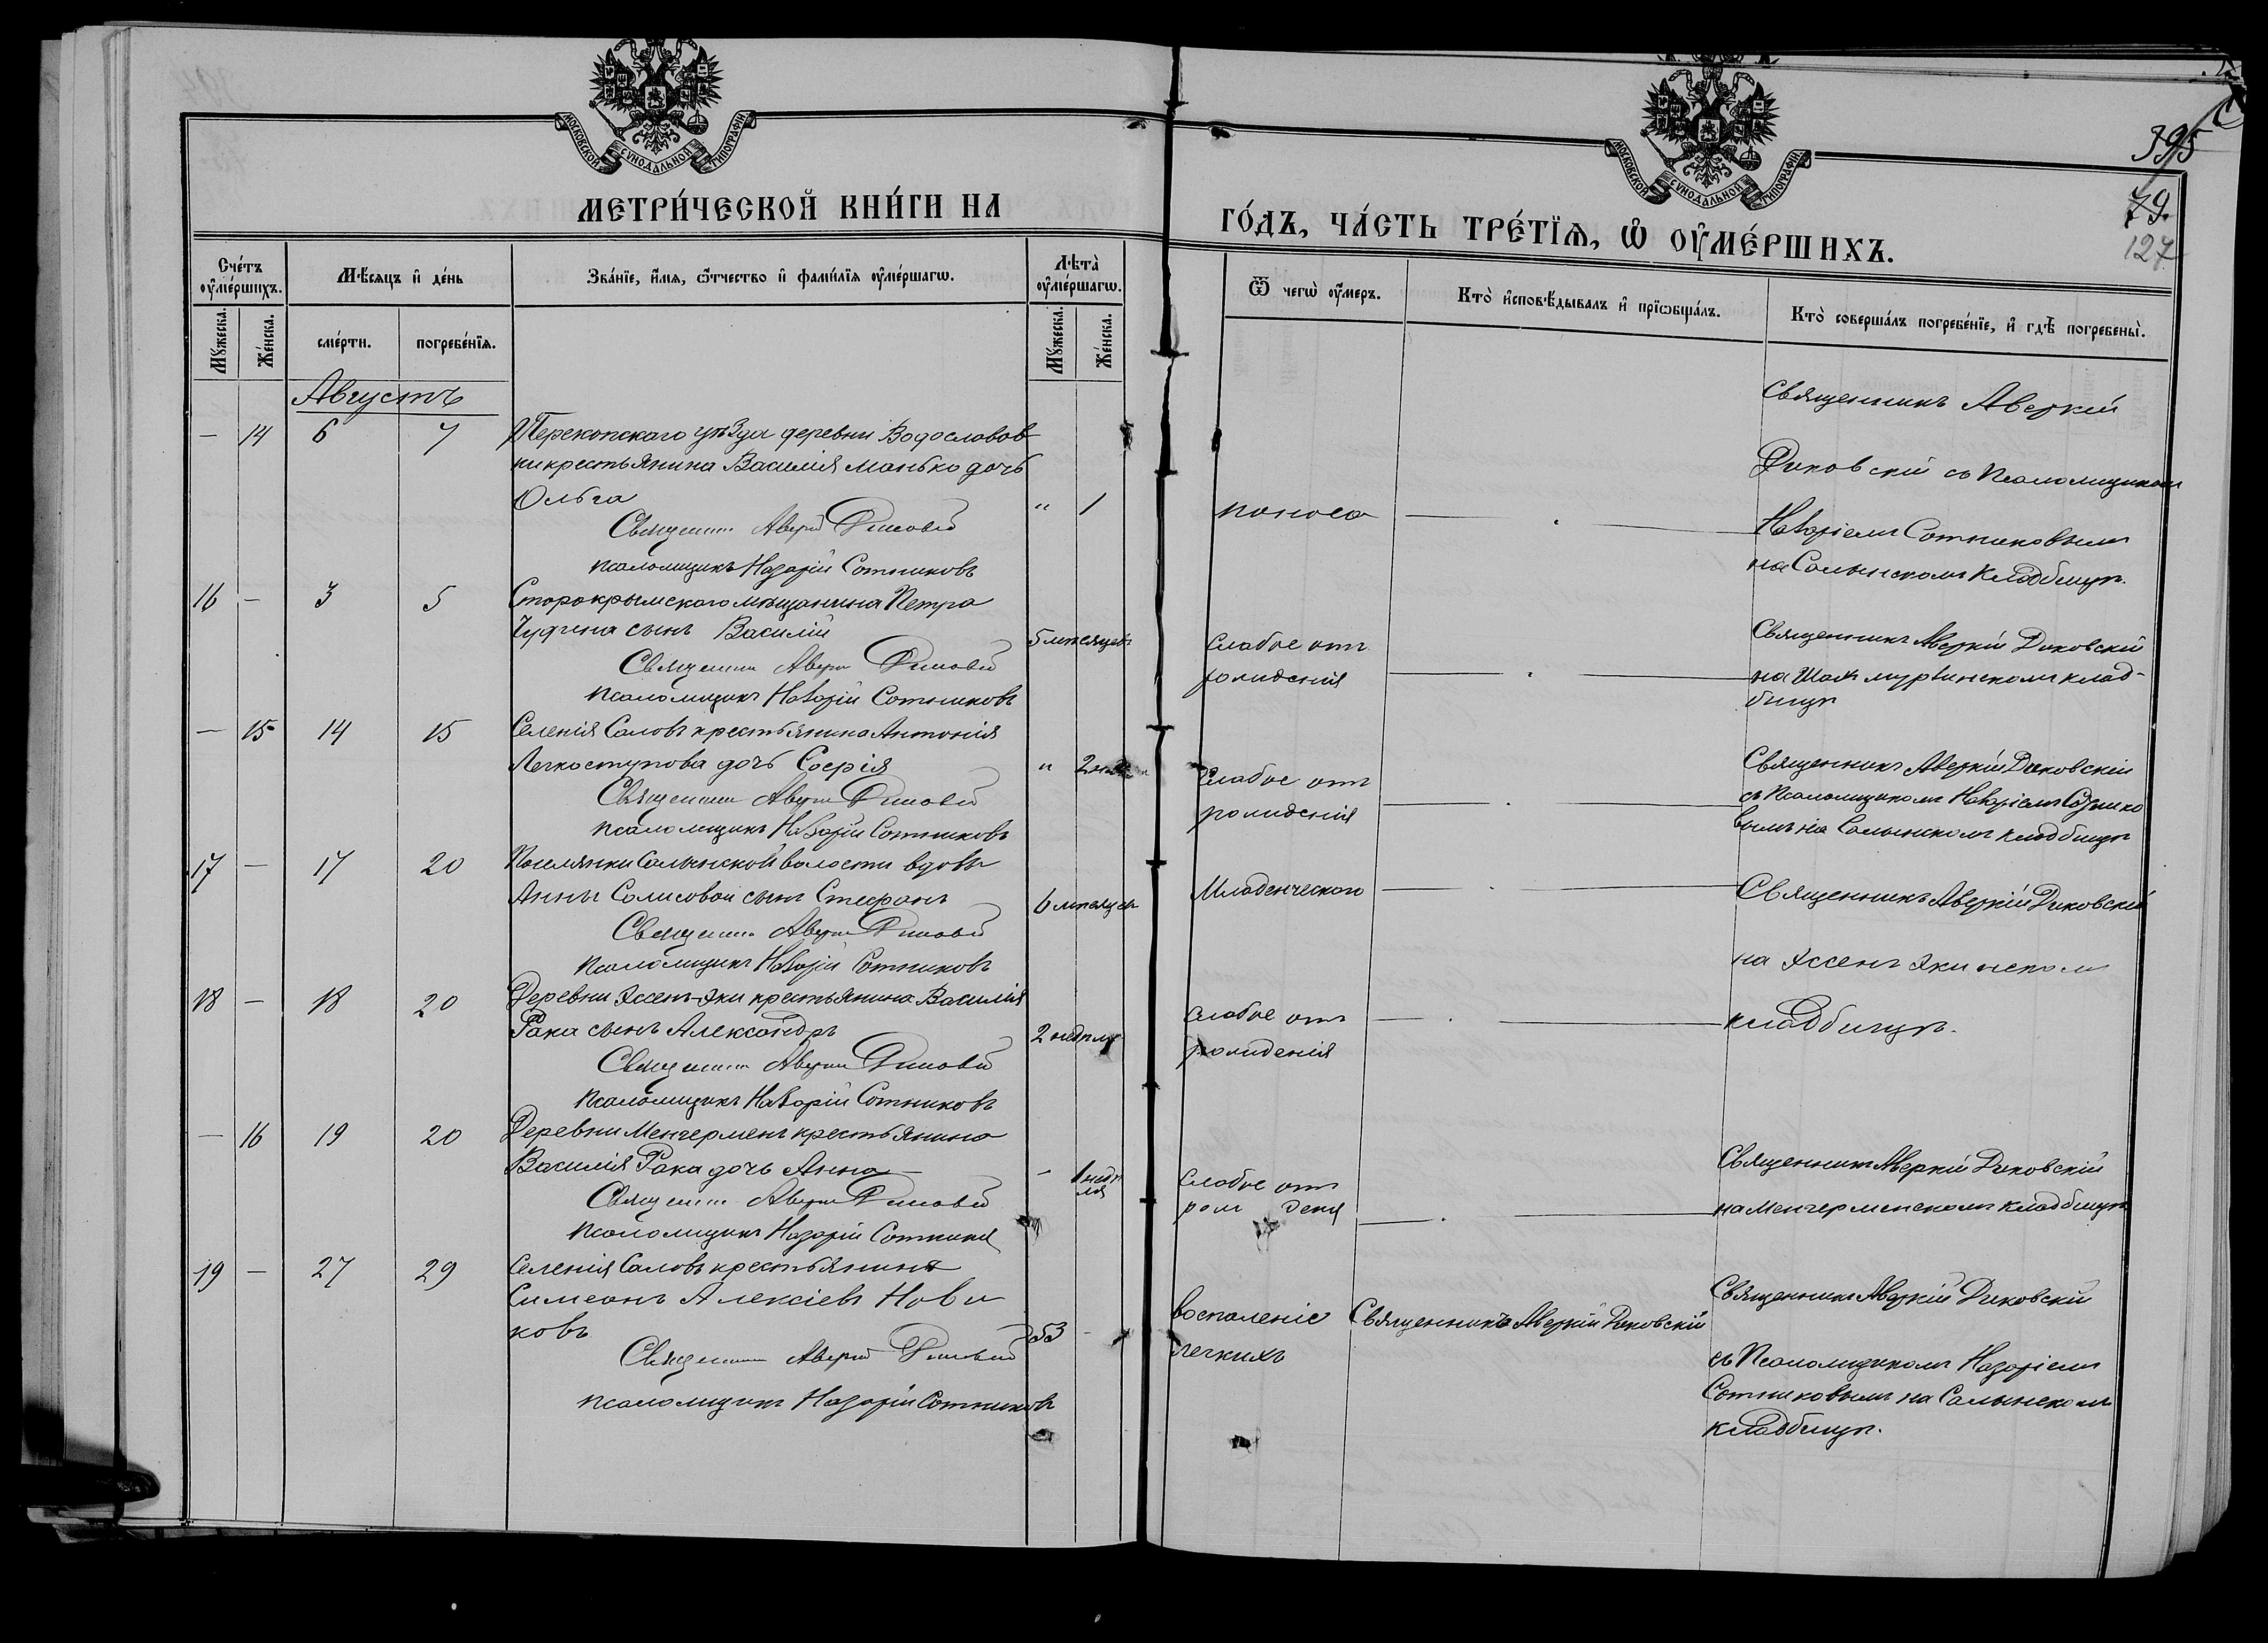 МОСКОВСКОЙ СУНОДАЛЬНОЙ ТИПОГРАФІИ
МОСКОВСКОЙ СУНОДАЛЬНОЙ ТИПОГРАФІИ
395
79.
127
МЕТРИ́ЧЕСКОЙ КНИ́ГИ НА
ГО́ДЪ, ЧА́СТЬ ТРЕ́ТЇѦ, Ѡ҆ ОУ҆МЕ́РШИХЪ.
Сче́тъ оу҆ме́ршихъ.
Мѣ́сяцъ и҆ де́нь
Зва́нїе, и҆́мя, ѻ҆́тчество и҆ фами́лїя оу҆ме́ршагѡ.
Лѣ́та оу҆ме́ршагѡ.
Ѿ чегѡ̀ оу҆́меръ.
Кто̀ и҆сповѣ́дывалъ и҆ прїѡбща́лъ.
Кто̀ соверша́лъ погребе́нїе, и҆ гдѣ̀ погребены̀.
Мꙋ́жеска.
Же́нска.
сме́рти.
погребе́нїя.
Мꙋ́жеска.
Же́нска.
Августъ
— 14 6 7 Перекопскаго уѣзда деревни Водословов
ки крестьянина Василія Манько дочь
Ольга " 1 поноса
Священникъ Аверкій Диковскій
псаломщикъ Назарій Сотниковъ
Священникъ Аверкій
Диковскій съ Псаломщикомъ
Назаріемъ Сотниковымъ
на Салынскомъ кладбищѣ.
16 — 3 5 Старокрымскаго мѣщанина Петра
сынъ Василій 5 мѣсяцевъ
Священникъ Аверкій Диковскій
псаломщикъ Назарій Сотниковъ
Слабос отъ
рожденія
Священникъ Аверкій Диковскій
на клад-
бищѣ
— 15 14 15 Селенія Саловъ крестьянина Антонія
Легкоступова дочь Софія " 2
Священникъ Аверкій Диковскій
псаломщикъ Назарій Сотниковъ
Слабос отъ
рожденія
Священникъ Аверкій Диковскій
съ Псаломщикомъ Назаріемъ Сотнико
вымъ на Салынскомъ кладбищѣ
17 — 17 20 Поселянки Салынской волости вдовы
Анны Салисовой сынъ Стефанъ 6 мѣсяцевъ
Священникъ Аверкій Диковскій
псаломщикъ Назарій Сотниковъ
Младенческой
Священникъ Аверкій Диковскій
на Эссенъ Экинском
кладбищѣ.
18 — 18 20 Деревни Эссенъ-Эки крестьянина Василія
Рака сынъ Александръ 2 недѣли
Священникъ Аверкій Диковскій
псаломщикъ Назарій Сотниковъ
Слабос отъ
рожденія
— 16 19 20 Деревни Менгерменъ крестьянина
Василія Рака дочь Анна — 1 недѣ
ля
Священникъ Аверкій Диковскій
псаломщикъ Назарій Сотников
Слабос отъ
рож денія
Священникъ Аверкій Диковскій
на Менгерменскомъ кладбищѣ
19 — 27 29 Селенія Саловъ крестьянинъ
Симеонъ Алексіевъ Нови
ковъ 53 —
Священникъ Аверкій Диковскій
псаломщикъ Назарій Сотниковъ
воспаленіе
легкихъ
Священникъ Аверкій Диковскій
Священникъ Аверкій Диковскій
съ Псаломщикомъ Назаріемъ
Сотниковымъ на Салынскомъ
кладбищѣ.